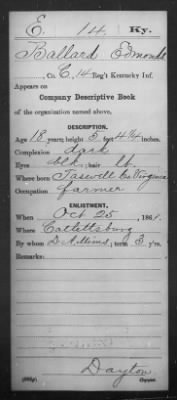 E. 14 Ky.
Ballard Edmonds
, Co. C, 14 Reg't Kentucky Inf.
Appears on
Company Descriptive Book
of the organization named above.
DESCRIPTION.
Age 18 years; height 5 feet 4¼ inches.
Complexion dark
Eyes blk; hair lt.
Where born Taswell Co Virginia
Occupation farmer
ENLISTMENT.
When Oct 25, 1861.
Where Catlettsburg
By whom D. Millems; term 3 y'rs.
Remarks:
Dayton
Copyist.